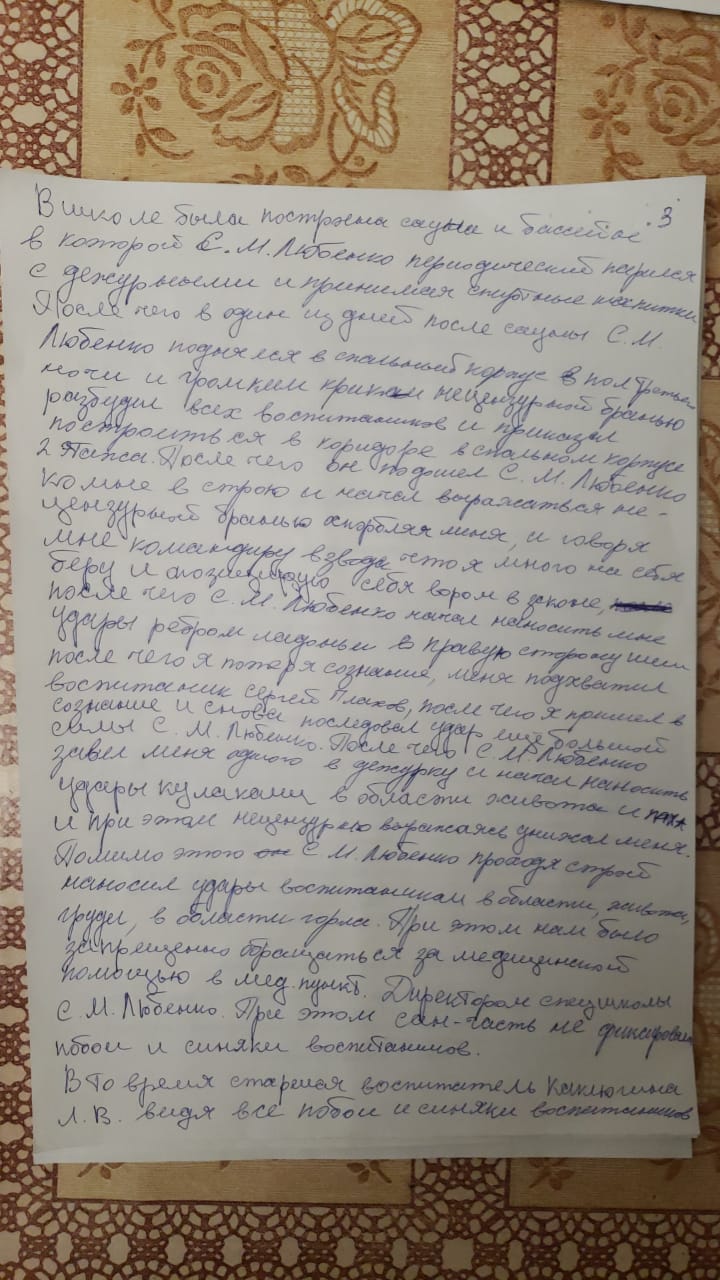 3
В школе была построена сауна и бассейн
в которой С. М. Любенко периодический парился
с дежурными и принимая спиртные напитки
После чего в один из дней после сауны С. М.
Любенко поднялся в спальный корпус в пол третьего
ночи и громким криком нецензурной бранью
разбудил всех воспитанников и приказал
построиться в коридоре в спальном корпусе
2 этажа. После чего он подошел С. М. Любенко
ко мне в строю и начал выражаться не-
цензурной бранью оскорбляя меня, и говоря
мне командиру взвода что я много на себя
беру и себя вором в законе,
после чего С. М. Любенко начал наносить мне
удары ребром ладоньи в правую сторону шеи
после чего я потеря сознание, меня подхватил
воспитаник Сергей Плахов, после чего я пришел в
сознание и снова последовал удар еще большой
силы С. М. Любенко. После чего С. М. Любенко
завел меня одного в дежурку и начал наносить
удары кулаками в области живота и паха
и при этом нецензурно выражаясь унижал меня.
Помимо этого С. М. Любенко проходя строй
наносил удары воспитаникам в области, живота,
груди, в области горла. При этом нам было
запрещенно обращаться за медицинской
помощью в мед. пункт. Директором спецшколы
С. М. Любенко. При этом сан-часть не фиксировали
побои и синяки воспитаников.
В то время старшея воспитатель Каклюгина
Л. В. видя все побои и синяки воспитаников